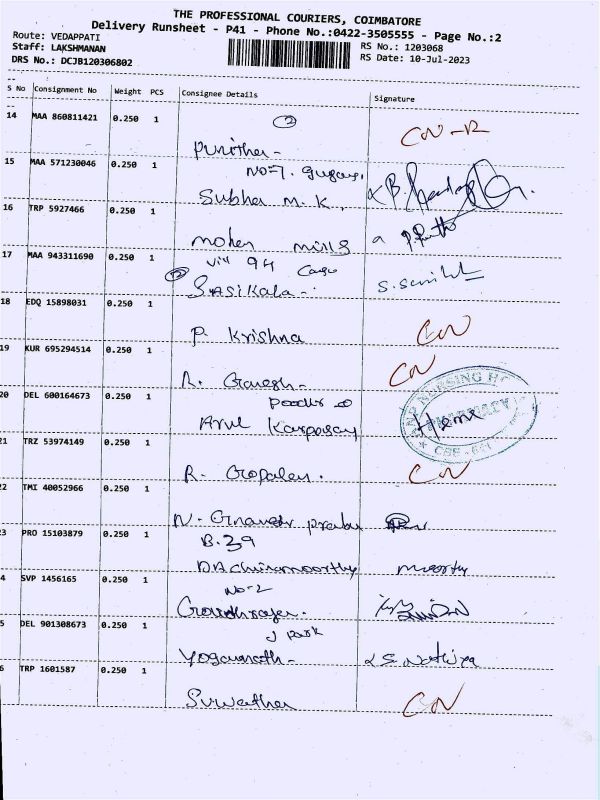 THE PROFESSIONAL COURIERS, COIMBATORE
Delivery Runsheet - P41 - Phone No.:0422-3505555 - Page No.:2
Route: VEDAPPATI
RS No.: 1203068
Staff: LAKSHMANAN
RS Date: 10-Jul-2023
DRS No.: DCJB120306802
S No Consignment No Weight PCS Consignee Details Signature
14 MAA 860811421 0.250 1
Punitha - CN-R
15 MAA 571230046 0.250 1
No-7.
Subha M.K.
16 TRP 5927466 0.250 1
mohan mills
17 MAA 943311690 0.250 1
94
Sasikala - S.
18 EDQ 15898031 0.250 1
P. Krishna CN
19 KUR 695294514 0.250 1
R. Ganesh - CN
20 DEL 600164673 0.250 1
NURSING HO
Arul Hema
21 TRZ 53974149 0.250 1
R. Gopalan. CN
2 TMI 40052966 0.250 1
N. prabu
3 PRO 15103879 0.250 1
B.39
moorthy
4 SVP 1456165 0.250 1
No-2
5 DEL 901308673 0.250 1
J park
Yoganath -
6 TRP 1601587 0.250 1
Suwathe CN